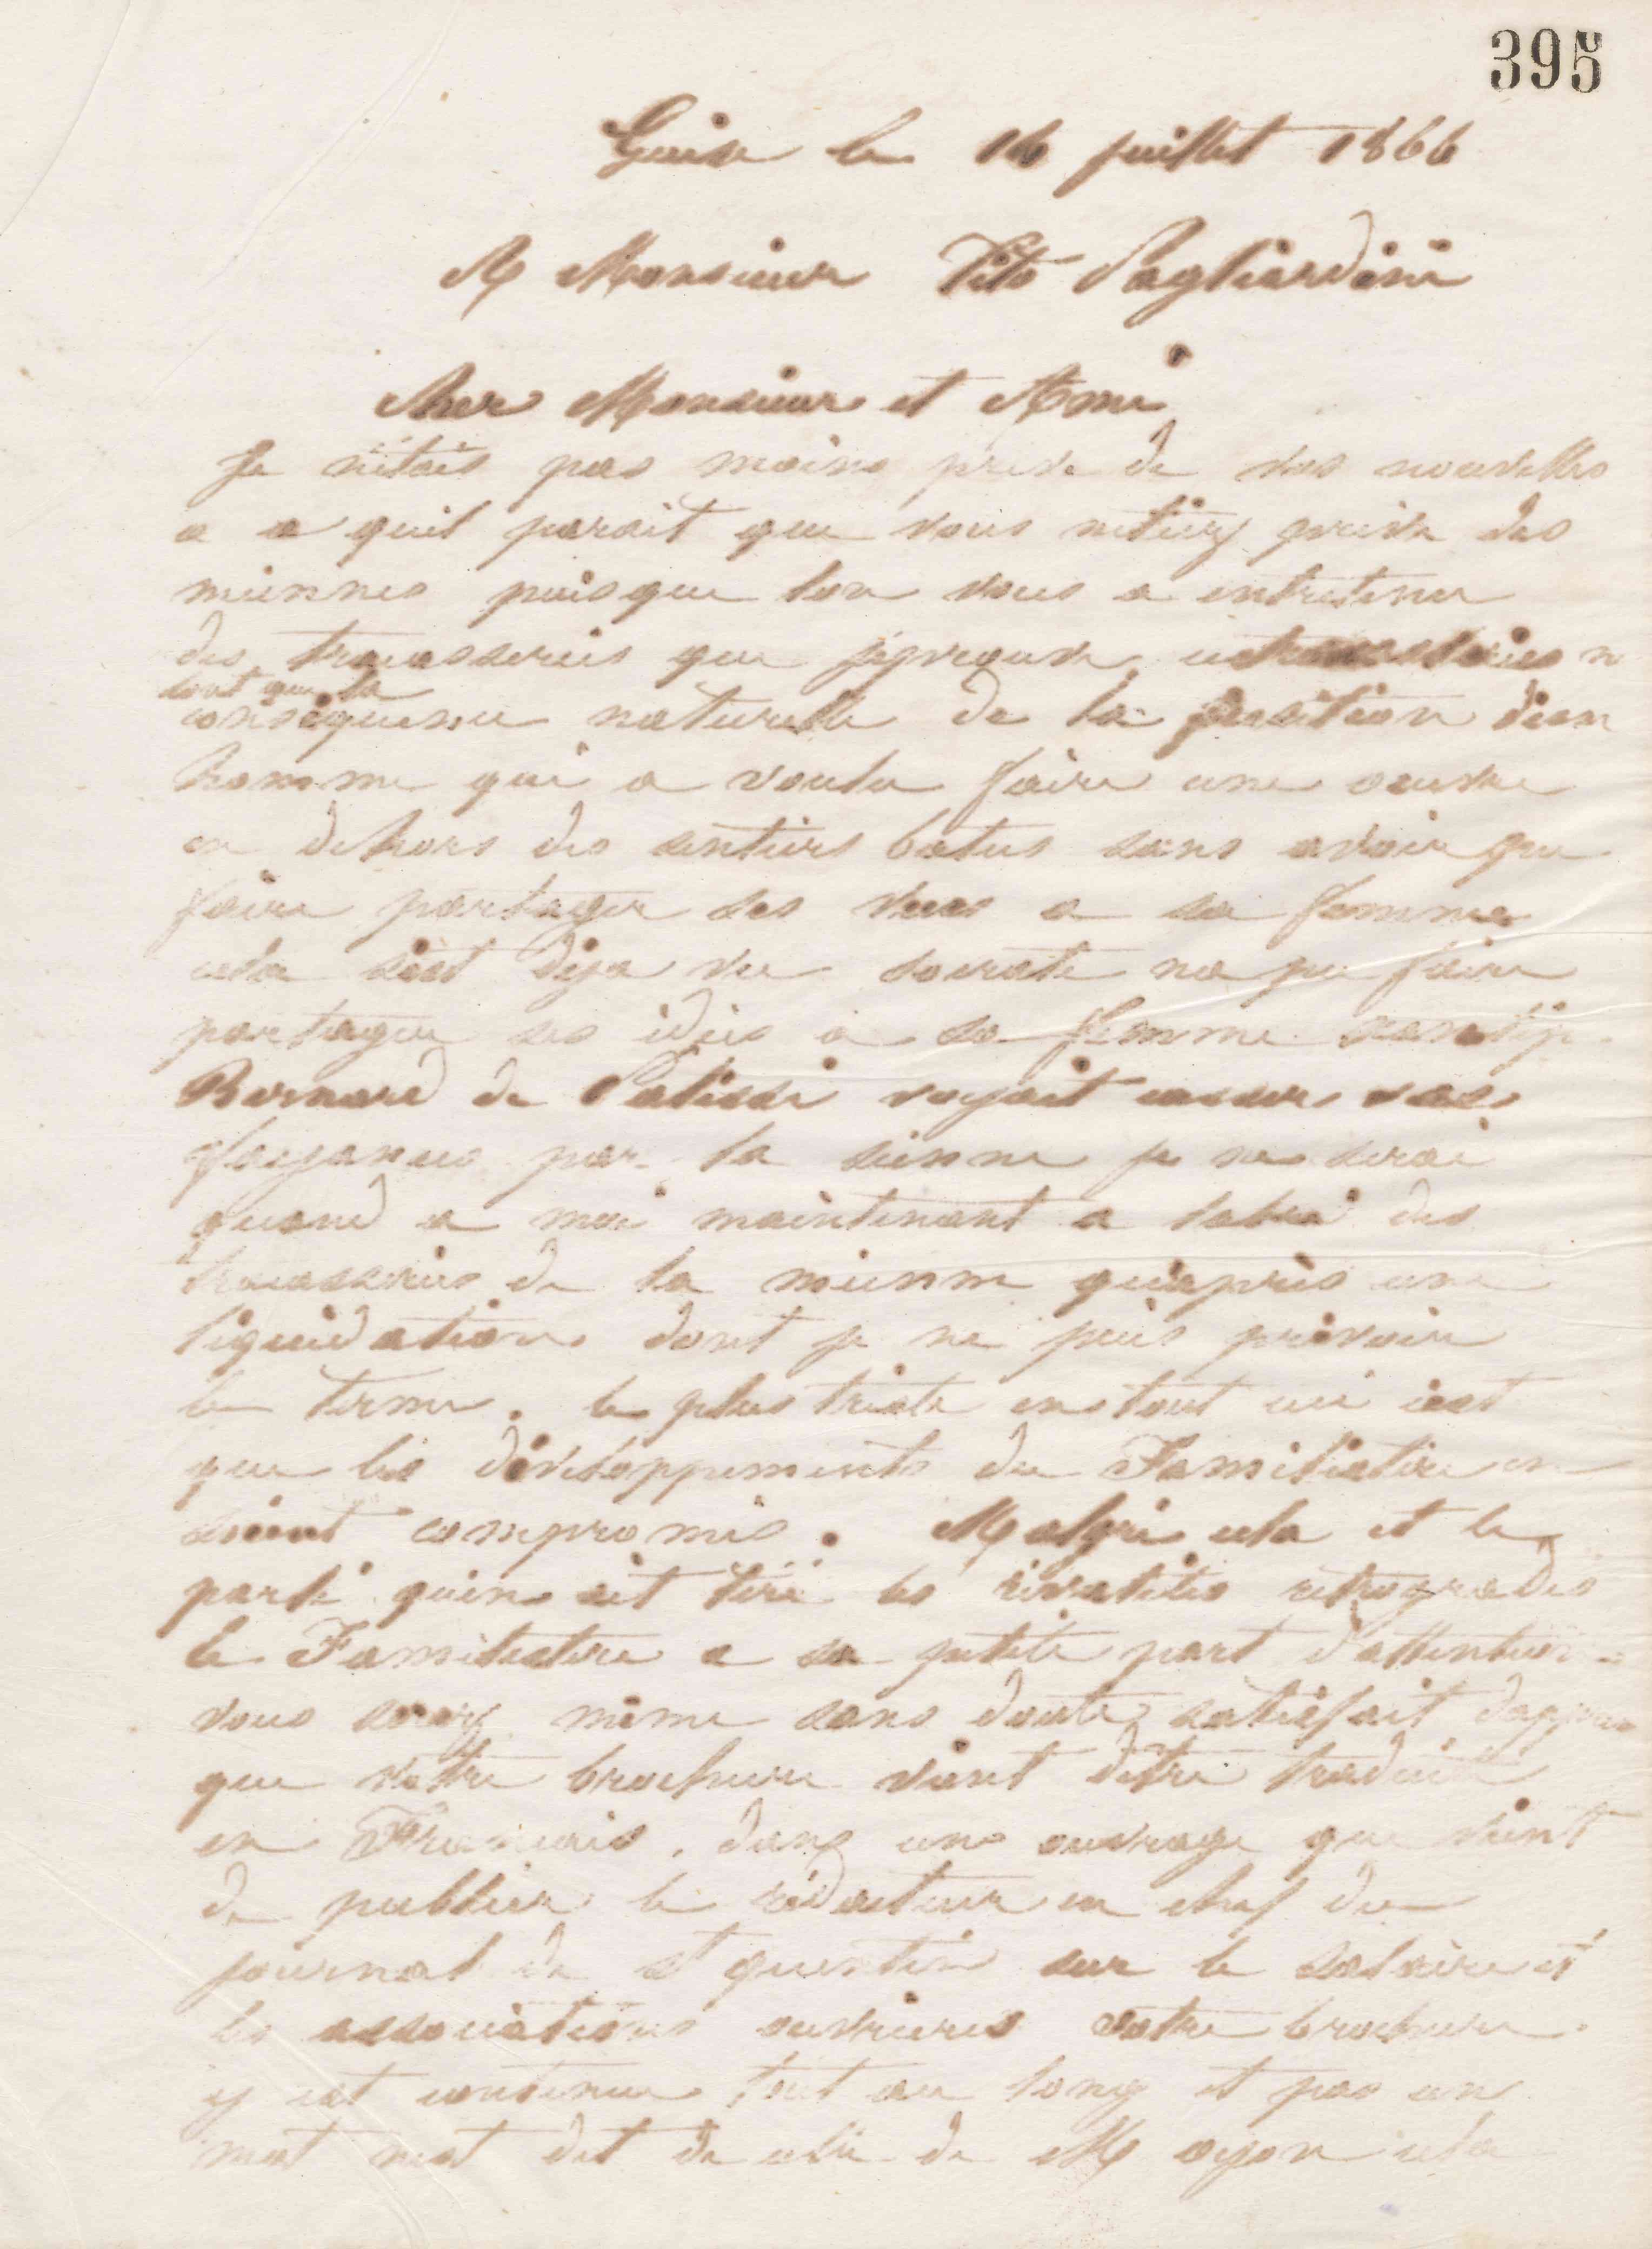 395
Guise le 16 juillet 1866
A Monsieur Tito Pagliardini
Cher Monsieur et Ami
Je n'étais pas moins privé de vos nouvelles
a ce quil parait que vous netiez privé des
miennes puisque lon vous a entretenu
des tracasseries que jéprouve, ces tracasseries ne
sont que la
conséquence naturelle de la position dun
homme qui a voulu faire une œuvre
en dehors des sentiers batus sans avoir pu
faire partager ses vues a sa femme
cela sest déja vu socrate na pu faire
partager ses idées a sa femme xantip.
Bernard de Palissi voyait casser ses
fayances par la sienne je ne serai
quand a moi maintenant a labri des
tracasseries de la mienne quaprès une
liquidation dont je ne puis prévoir
le terme. le plus triste en tout ceci cest
que les développements du Familistère en
soient compromis. Malgré cela et le
parti quen ait tiré les rivalités rétrogrades
le Familistère a sa petite part d'attention
vous serez même sans doute satisfait
que votre brochure vient detre traduite
en Francais, dans un ouvrage que vient
de publier le rédacteur en chef du
journal de st quentin sur le salaire et
les associations ouvrières votre brochure
y est contenue tout au long et pas un
mot nest dit de celle de M oyon cela